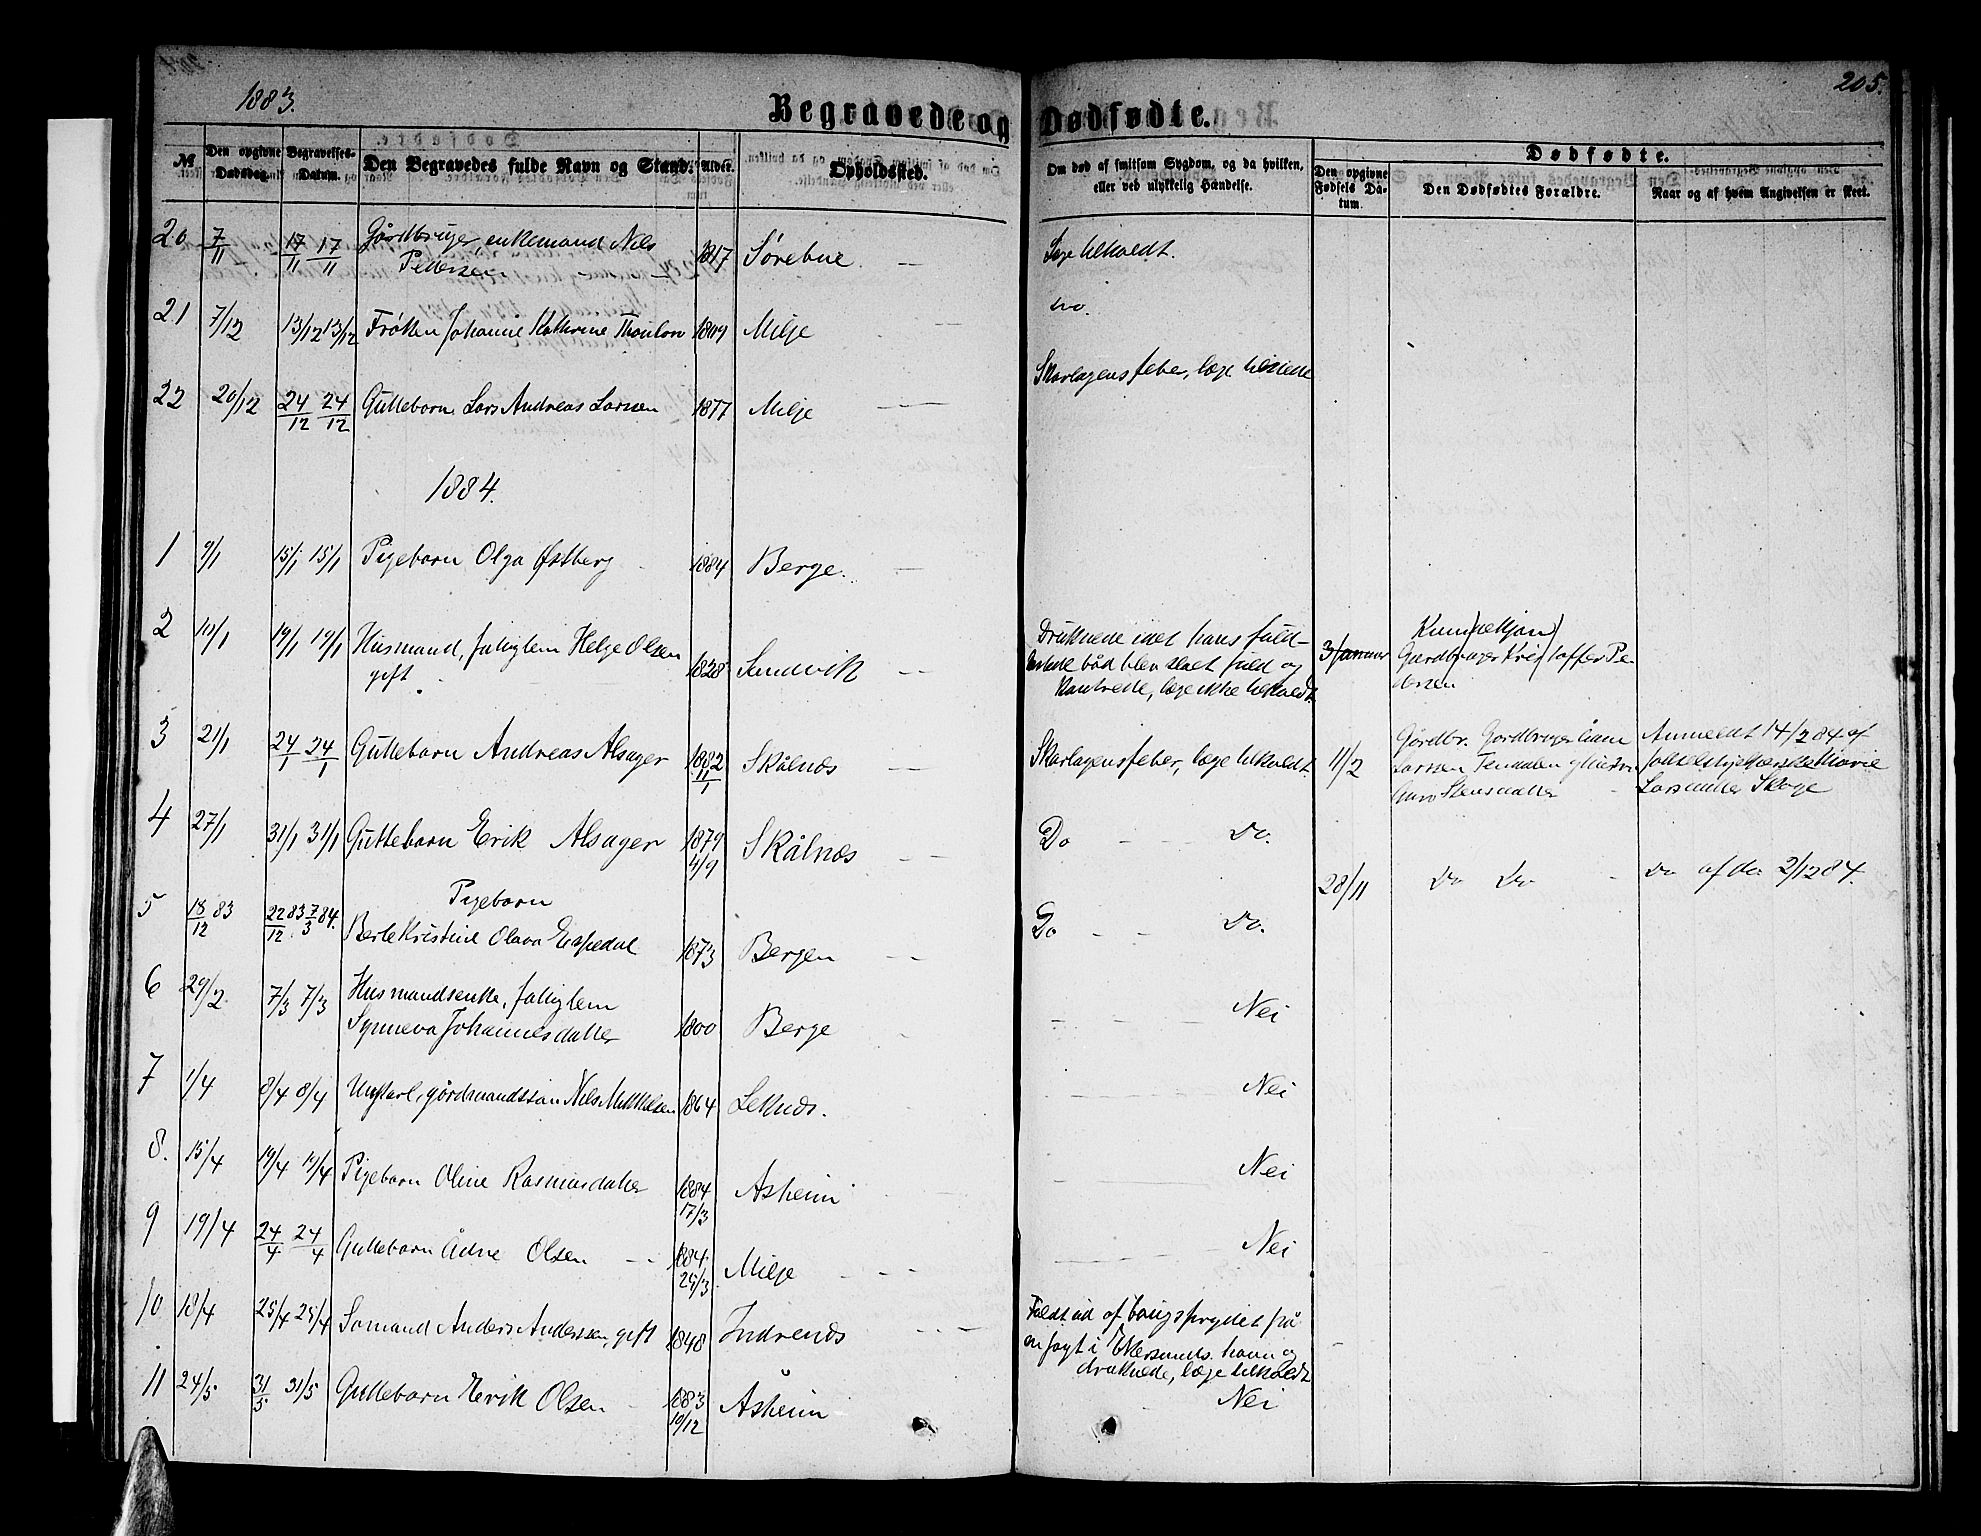 205.
1883.
Begravede og Dødfødte.
№
Den opgivne Dødsdag.
Begravelses-Datum.
Den Begravedes fulde Navn og Stand.
Alder.
Opholdssted.
Om død af smitsom Sygdom, og da hvilken,
eller ved ulykkelig Hændelse.
Dødfødte.
Den opgivne Fødsels Datum.
Den Dødfødtes Forældre.
Naar og af hvem Angivelsen er skeet.
20 7/11 17/11 17/11 Gårdbruger, enkemand Nils
Pedersen 1817 Sørebue
Læge tilkaldt.
21 7/12 13/12 13/12 Frøken Johanne Kathrine 1849 Milje
do.
22 20/12 24/12 24/12 Guttebarn Lars Andreas Larsen 1877 Milje
Skarlagensfeber, læge
1884.
1 9/1 15/1 15/1 Pigebarn Olga Østberg 1884 Berge.
2 10/1 19/1 19/1 Husmand, faliglem Helge Olsen
gift 1828 Sundvik
Druknede idet hans
båd blev slaet fuld og
kantrede, læge ikke tilkaldt.
3 Januar
Gardbruger Kristoffer Pe-
dersen
3 21/1 24/1 24/1 Guttebarn Andreas Alsager 1882 11/1 Skålnæs
Skarlagensfeber, læge tilkaldt.
11/2
Gårdbr. Gardbruger
Larsen
Stensdatter
Anmeldt 14/2 84 af
Marie
Larsdatter Skoge
4 27/1 31/1 31/1 Guttebarn Erik Alsager 1879 4/9 Skålnæs
Do Do.
28/11 Do Do Do af do 2/12 84.
5 18/12 83 22/12 83 7/3 84. Pigebarn
Kristine Olava Espedal 1873 Bergen
Do Do.
6 29/2 7/3 7/3 Husmandsenke, faliglem
Synneva Johannesdatter 1800 Berge
Nei
7 1/4 8/4 8/4 Ungkarl, gårdmandssøn Nils Mikkelsen 1864 Leknæs.
Nei
8. 15/4 19/4 19/4 Pigebarn Oline Rasmusdatter 1884 17/3 Åsheim
Nei
9 19/4 24/4 24/4 Guttebarn Adne Olsen 1884 25/3 Milje
Nei
10 18/4 25/4 25/4 Sømand Anders Anderssen, gift 1848 Indrenæs
Faldt ud af baugsprydet på
en jagt i Ekersunds havn og
druknede, læge tilkaldt
11 24/5 31/5 31/5 Guttebarn Erik Olsen 1883 19/12 Åsheim
Nei